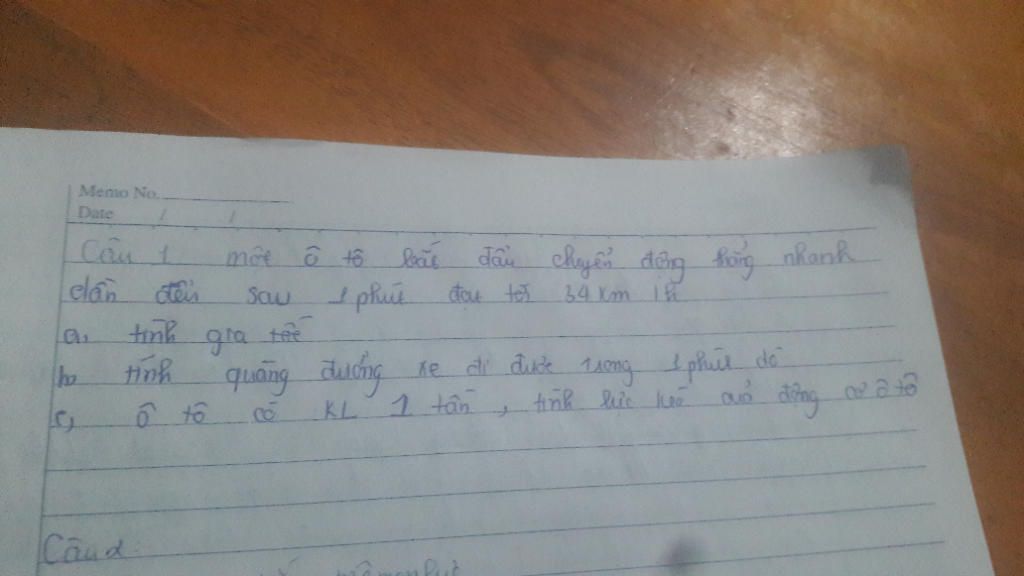 Memo No.
Date / /
Câu 1 một ô tô bắt đầu chuyển động thẳng nhanh
dần đều sau 1 phút đạt tới 34 km /h
a, tính gia tốc
b, tính quãng đường xe đi được trong 1 phút đó
c, ô tô có KL 1 tấn, tính lực kéo của động cơ ô tô
Câu 2: